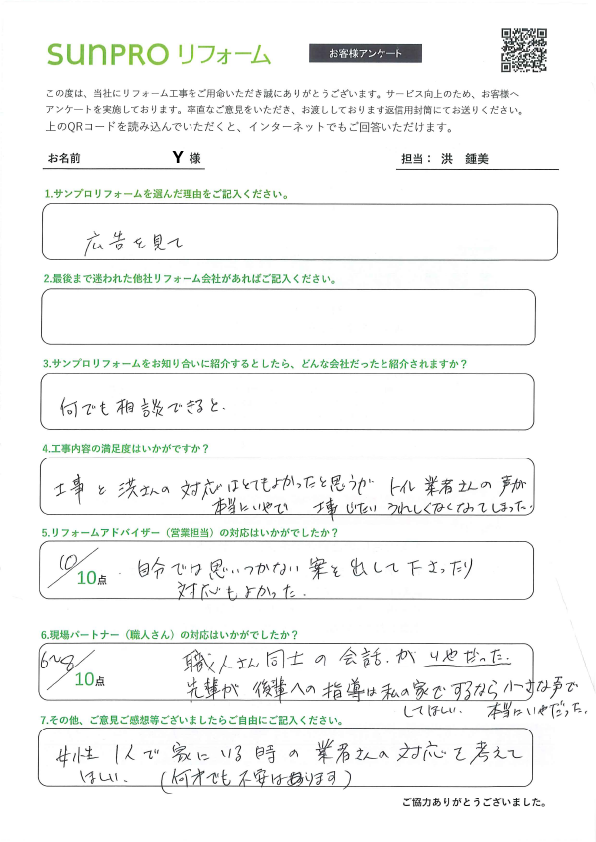 SUNPRO リフォーム
お客様アンケート
この度は、当社にリフォーム工事をご用命いただき誠にありがとうございます。サービス向上のため、お客様へ
アンケートを実施しております。率直なご意見をいただき、お渡ししております返信用封筒にてお送りください。
上のQRコードを読み込んでいただくと、インターネットでもご回答いただけます。
お名前 Y 様
担当： 洪 鍾美
1.サンプロリフォームを選んだ理由をご記入ください。
広告を見て
2.最後まで迷われた他社リフォーム会社があればご記入ください。
3.サンプロリフォームをお知り合いに紹介するとしたら、どんな会社だったと紹介されますか？
何でも相談できると.
4.工事内容の満足度はいかがですか？
工事と洪さんの対応はとてもよかったと思うが トイレ業者さんの声が
本当にいやで 工事じたいうれしくなくなってしまった.
5.リフォームアドバイザー（営業担当）の対応はいかがでしたか？
10/10点 . 自分では思いつかない案を出して下さったり
対応もよかった.
6.現場パートナー（職人さん）の対応はいかがでしたか？
6〜8/10点 職人さん同士の会話.がいやだった.
先輩が後輩への指導は私の家でするなら小さな声で
してほしい. 本当にいやだった.
7.その他、ご意見ご感想等ございましたらご自由にご記入ください。
女性1人で家にいる時の業者さんの対応を考えて
ほしい. (何才でも不安はあります)
ご協力ありがとうございました。